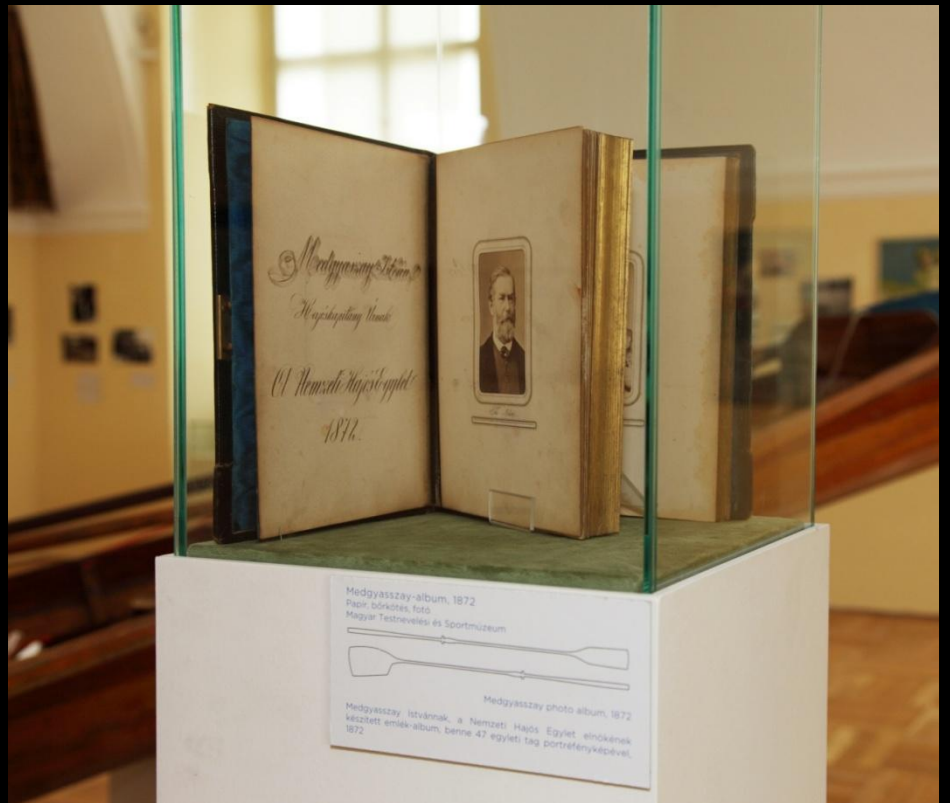 Medgyasszay István
Hajóskapitány Úrnak
A Nemzeti Hajós Egylet
1872.
Medgyasszay-album, 1872
Papír, bőrkötés, fotó
Magyar Testnevelési és Sportmúzeum
Medgyasszay photo album, 1872
Medgyasszay Istvánnak, a Nemzeti Hajós Egylet elnökének
készített emlék-album, benne 47 egyleti tag portréfényképével,
1872